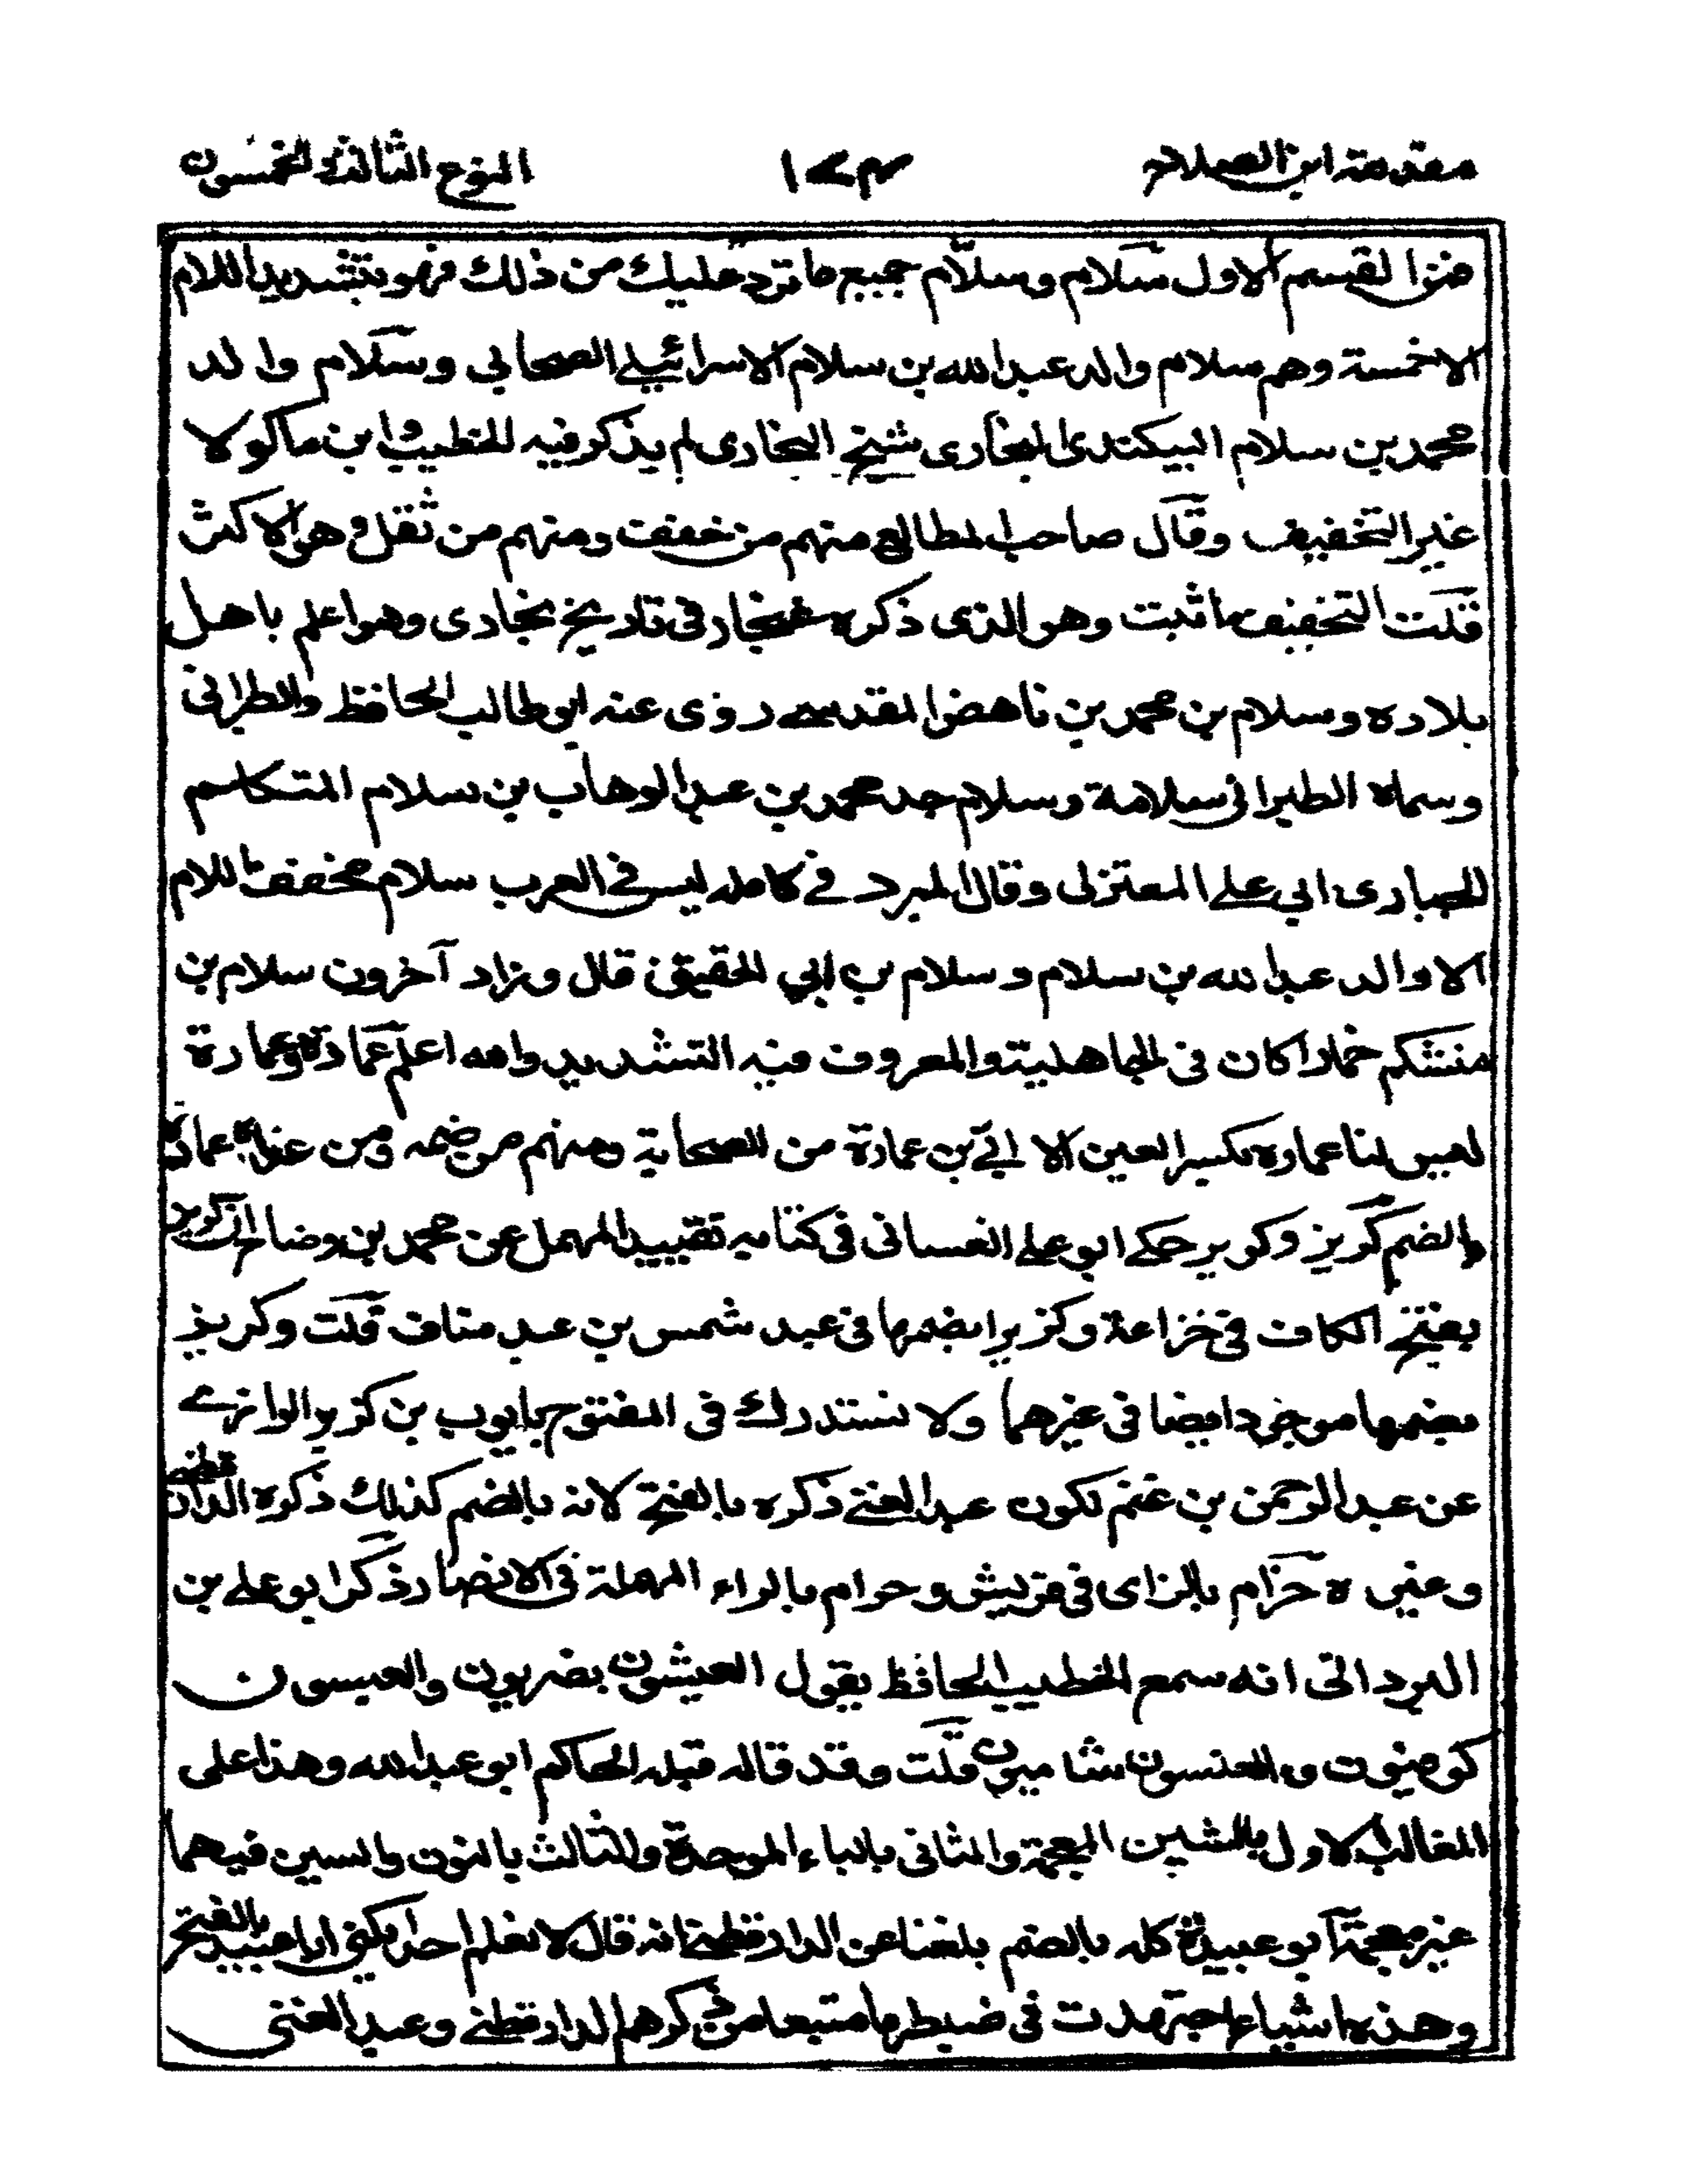 مقدمة ابن الصلاح ١٧٣ النوع الثالث والخمسون
فمن القسم الاول سلام وسلّام جميع ما ترد عليك من ذلك فهو بتشديد اللام
الا خمسة وهم سلام والد عبد الله بن سلام الاسرائيلي الصحابي وسلام والد
محمد بن سلام البيكندى البخارى شيخ البخارى لم يذكر فيه الخطيب وابن ماكولا
غير التخفيف وقال صاحب المطالع منهم من خفف ومنهم من ثقل وهو الاكثر
قلت التخفيف ما ثبت وهو الذى ذكره غنجار فى تاريخ بخارى وهو اعلم باهل
بلاده وسلام بن محمد بن ناهض المقدسے روى عنه ابو طالب الحافظ والطبرانى
وسماه الطبرانى سلامة وسلام جد محمد بن عبد الوهاب بن سلام المتكلم
الجبارى ابي علے المعتزلى وقال المبرد فے كامله ليس فے العرب سلام مخفف اللام
الا والد عبد الله بن سلام وسلام بن ابي الحقيق قال وزاد آخرون سلام بن
مشكم خمارا كان فى الجاهلية والمعروف فيه التشديد والله اعلم عمارة وعمارة
ليس لنا عمارة بكسر العين الا ابي بن عمارة من الصحابة ومنهم من ضمه ومن عداه عمارة
بالضم كريز وكرير حكے ابو علے الغسانى فى كتابه تقييد المهمل عن محمد بن وضاح ان كريز
بفتح الكاف فى خزاعة وكزيرا بضمها فى عبد شمس بن عبد مناف قلت وكريز
بضمها موجود ايضا فى غيرهما ولا نستدرك فى المفتوح بايوب بن كريز الراوے
عن عبد الرحمن بن غنم لكون عبد الغنے ذكره بالفتح لانه بالضم كذلك ذكره الدارقطنے
وغيره حزام بالزاى فى قريش وحرام بالراء المهملة فى الانصار ذكر ابو علے بن
البرداني انه سمع الخطيب الحافظ يقول العيشون بصريون والعبسون
كوفيون والعنسون شاميون قلت وقد قاله قبله الحاكم ابو عبد الله وهذا على
الغالب الاول بالشين المعجمة والثانى بالباء الموحدة والثالث بالنون والسين فيهما
غير معجمة ابو عبيدة كله بالضم بلغنا عن الدارقطنے انه قال لا نعلم احدا يكنى ابا عبيدة بالفتح
وهذه اشياء اجتهدت فى ضبطها متتبعا من ذكرهم الدارقطنے وعبد الغنى